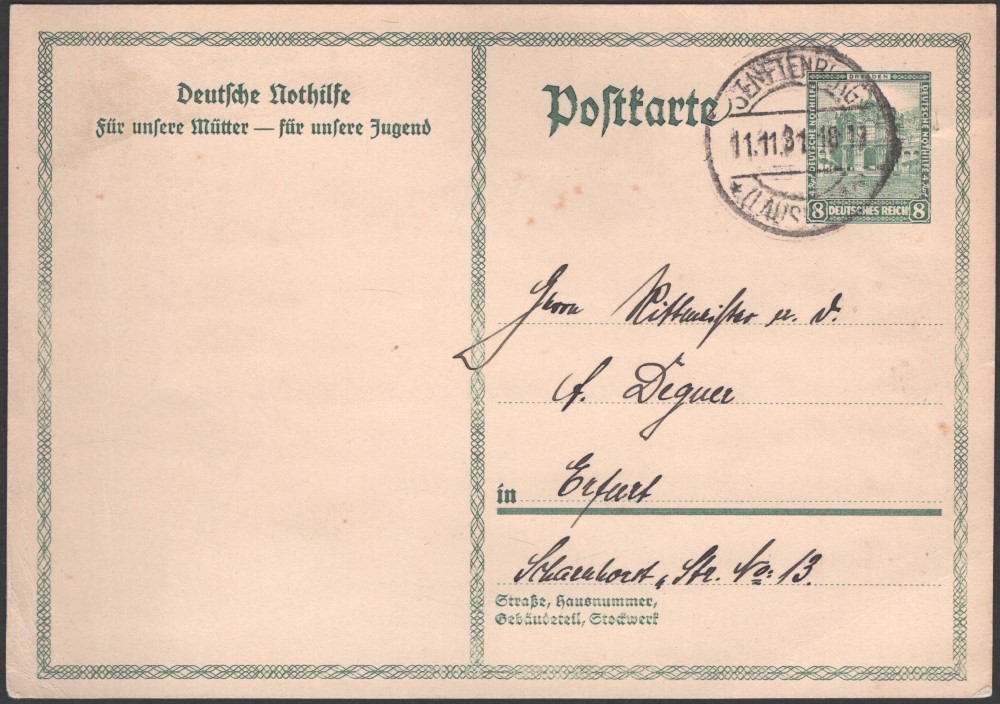 Deutsche Nothilfe
Für unsere Mütter — für unsere Jugend
Postkarte
SENFTENBERG
11.11.31. 18-19
* (LAUSITZ)
DRESDEN
DEUTSCHE NOTHILFE
DEUTSCHE NOTHILFE 4
8 DEUTSCHES REICH 8
Herrn Rittmeister a. D.
A. Degner
in Erfurt
Scharnhorst-Str. No: 13.
Straße, Hausnummer,
Gebäudeteil, Stockwerk